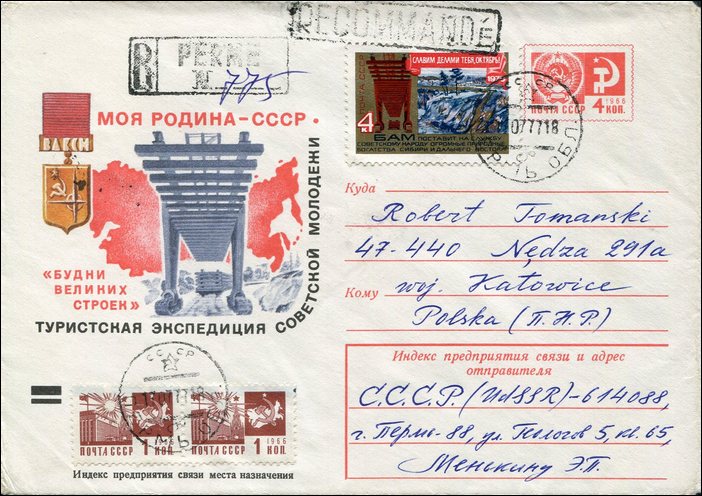 RECOMMANDÉ
R PERME
N 775
СЛАВИМ ДЕЛАМИ ТЕБЯ, ОКТЯБРЬ!
ПОЧТА СССР
1975
4 к
БАМ ПОСТАВИТ НА СЛУЖБУ
СОВЕТСКОМУ НАРОДУ ОГРОМНЫЕ ПРИРОДНЫЕ
БОГАТСТВА СИБИРИ И ДАЛЬНЕГО ВОСТОКА
1966
ПОЧТА СССР 4 КОП.
МОЯ РОДИНА-СССР •
ВЛКСМ
«БУДНИ
ВЕЛИКИХ
СТРОЕК»
ТУРИСТСКАЯ ЭКСПЕДИЦИЯ СОВЕТСКОЙ МОЛОДЕЖИ
Куда
Robert Tomanski
47-440 Nędza 291a
Кому
woj. Katowice
Polska (П.Н.Р.)
Индекс предприятия связи и адрес
отправителя
С.С.С.Р. (UdSSR)-614088,
г. Пермь-88, ул. Геологов 5, кв. 65,
Менькину Э.П.
СССР
ПОЧТА СССР 1 КОП.
1966
ПОЧТА СССР 1 КОП.
Индекс предприятия связи места назначения